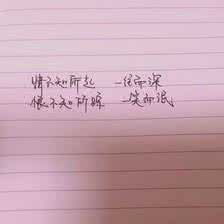 情不知所起 一往而深
恨不知所踪 一笑而泯